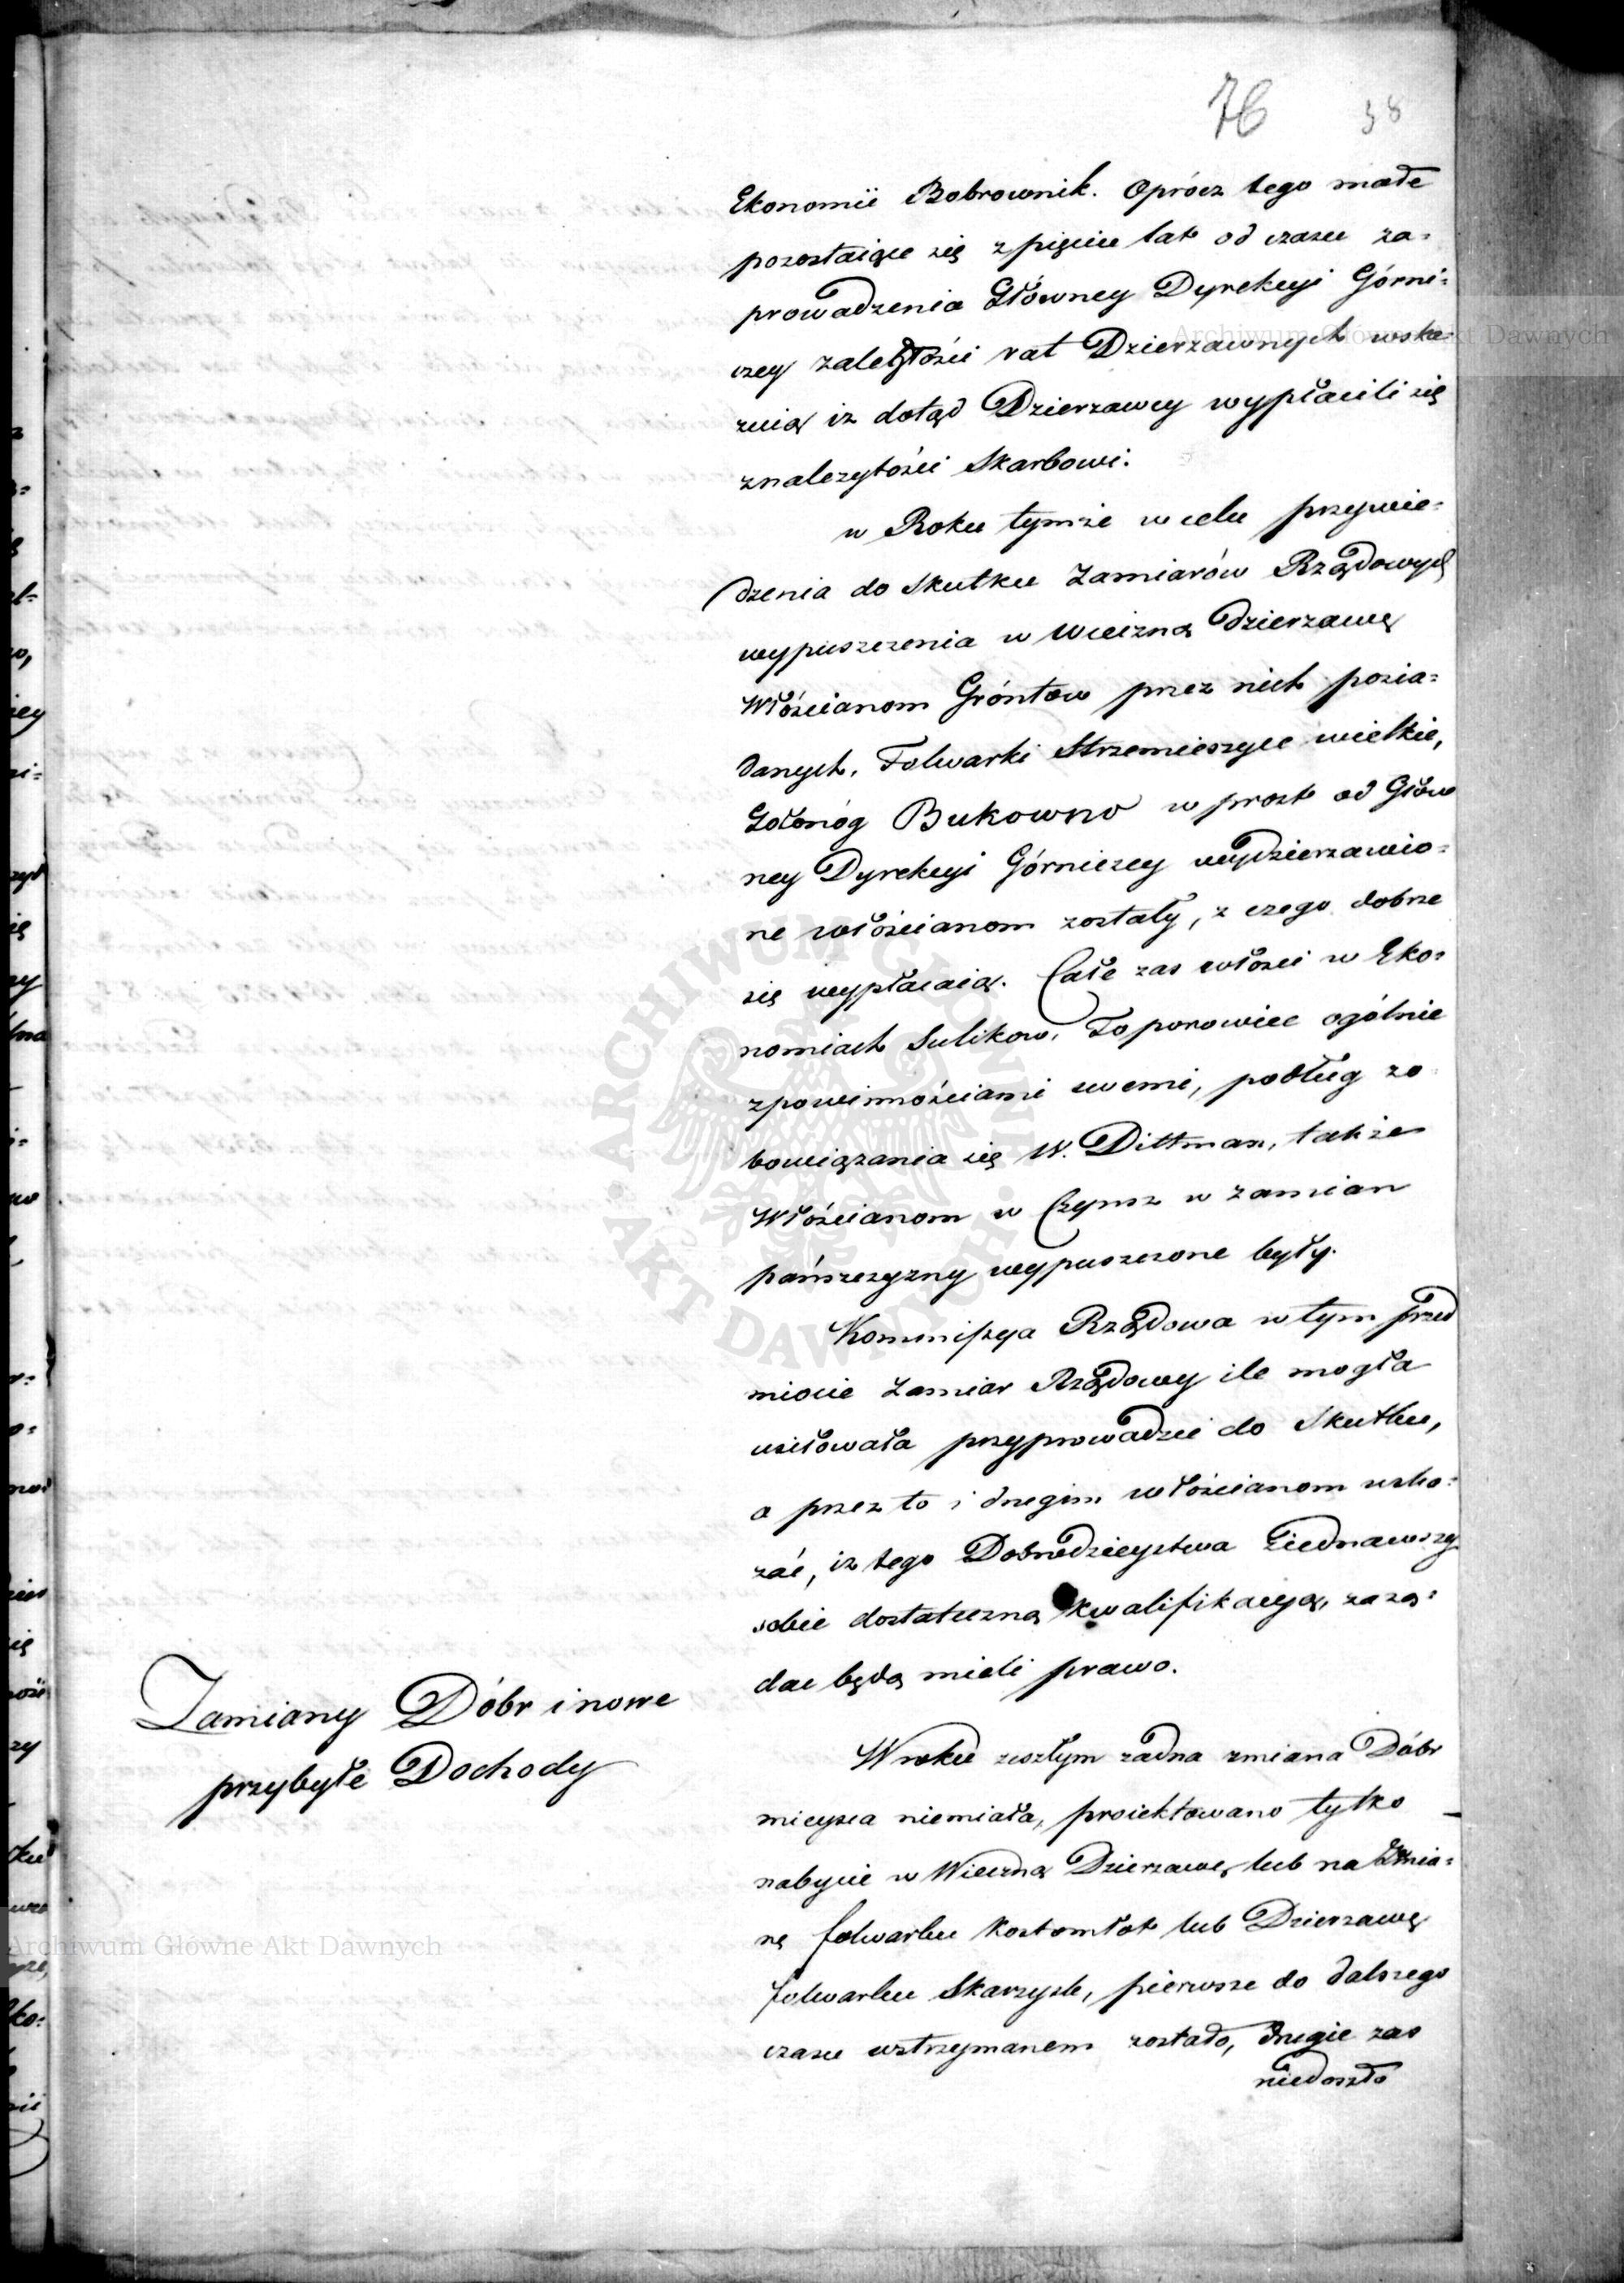 76 38
Ekonomii Bobrownik. Oprócz tego małe
pozostaiące się z pięciu lat od czasu za=
prowadzenia Główney Dyrekcyi Górni=
czey zaległości rat Dzierzawnych wska=
zuią iz dotąd Dzierzawcy wypłacili się
znalezytości Skarbowi.
w Roku tymże w celu przywie=
dzenia do Skutku Zamiarów Rządowych
wypuszczenia w Wieczną Dzierzawę
Włościanom Gróntow przez nich posia=
danych, Folwarki Strzemieszyce wielkie,
Gołonóg Bukowno w prost od Głów
ney Dyrekcyi Górniczey wydzierzawio=
ne włościanom zostały, z czego dobrze
się wypłacaią. Całe zas włosci w Eko=
nomiach Sulikow, Toporowice ogólnie
zpowinnościami swemi, podług zo
bowiązania się W. Dittman, także
Włościanom w Czynsz w zamian
pańszczyzny wypuszczone były.
Kommissya Rządowa w tym przed
miocie Zamiar Rządowy ile mogła
usiłowała przyprowadzic do Skutku,
a przez to i drugim włościanom wska=
zać, iz tego Dobrodzieystwa Ziednawszy
sobie dostateczną kwalifikacyą, zazą=
dac będą mieli prawo.
Zamiany Dóbr i nowe
przybyłe Dochody
W roku zeszłym zadna zmiana Dóbr
mieysca niemiała, proiektowano tylko
nabycie w Wieczną Dzierzawę lub na Zmia=
nę folwarku Kostomłot lub Dzierzawę
folwarku Skarzysk, pierwsze do dalszego
czasu wstrzymanem zostało, drugie zas
niedoszło
Archiwum Główne Akt Dawnych
Archiwum Główne Akt Dawnych
ARCHIWUM GŁÓWNE AKT DAWNYCH